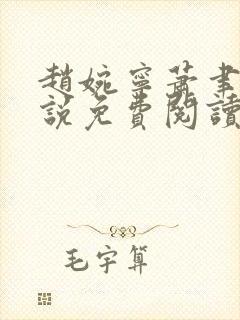 趙婉寧蕭聿
說免費閱讀
毛宇算